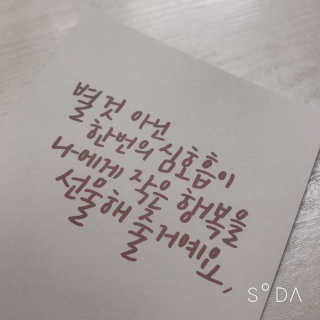 별것 아닌
한번의 심호흡이
나에게 작은 행복을
선물해 줄거예요,
S°DA